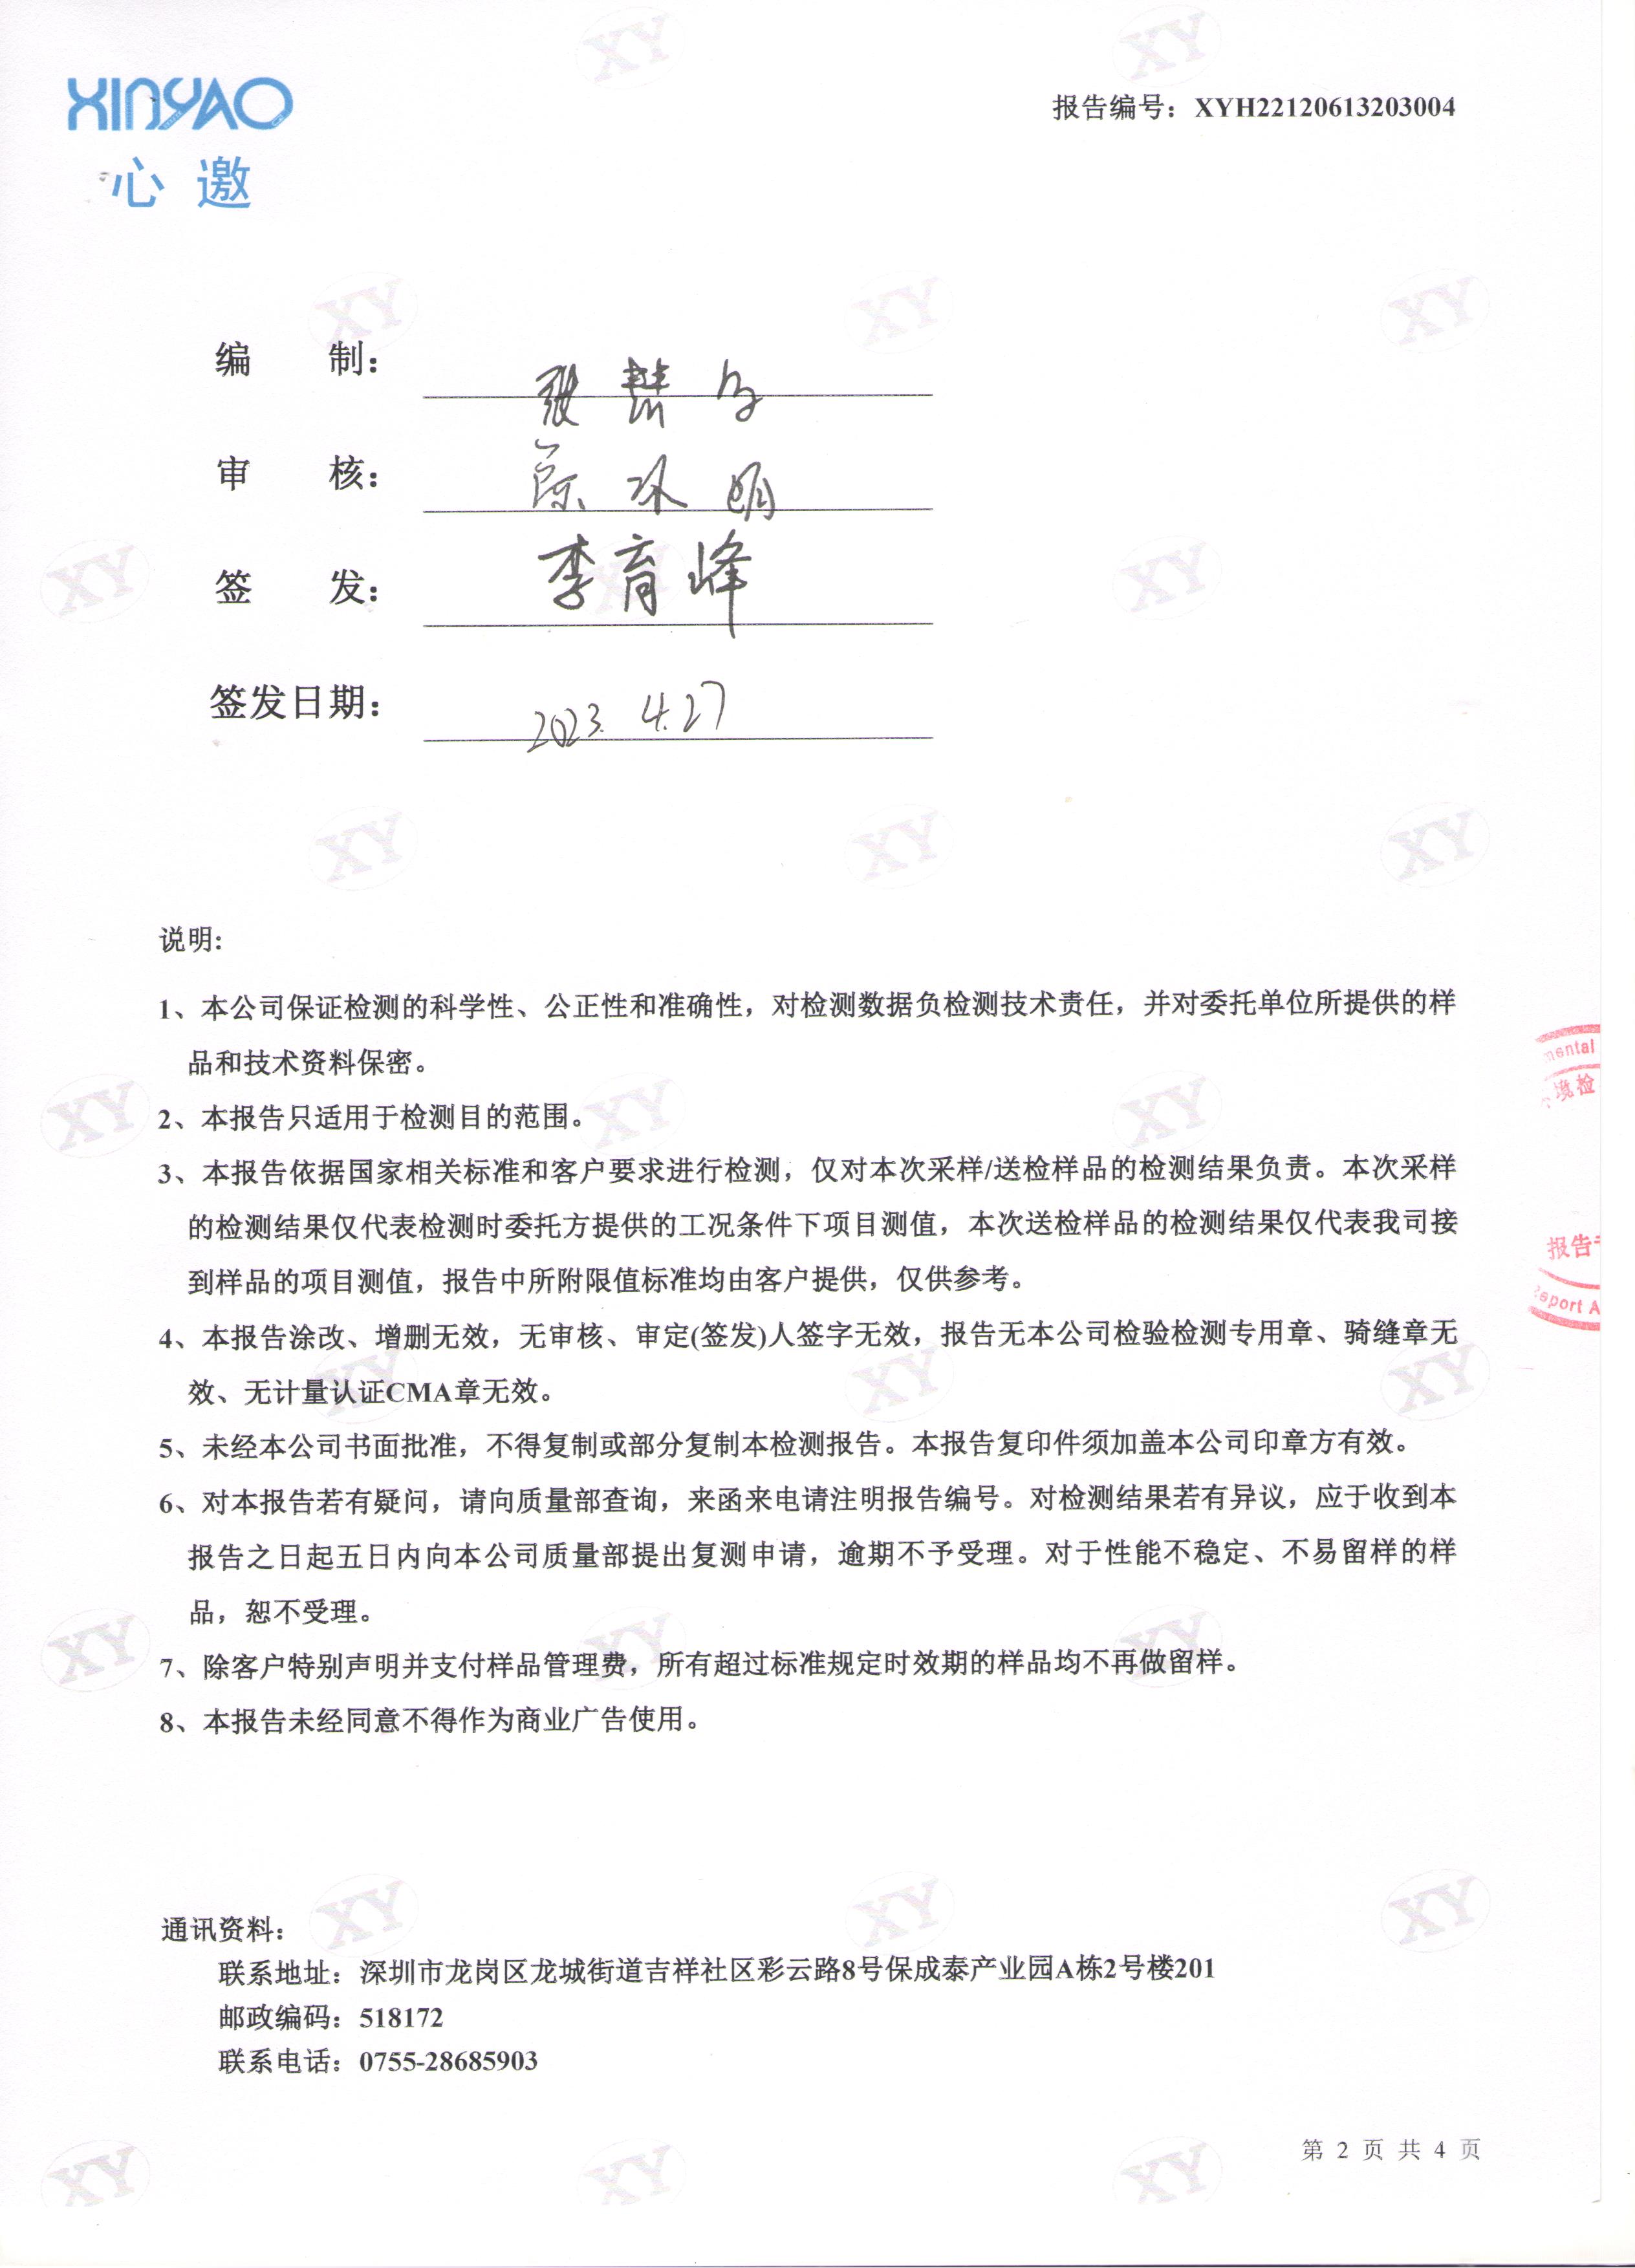 XINYAO
心邀
报告编号：XYH22120613203004
编 制：
审 核：
签 发：李育峰
签发日期：2023.4.27
说明:
1、本公司保证检测的科学性、公正性和准确性，对检测数据负检测技术责任，并对委托单位所提供的样
品和技术资料保密。
2、本报告只适用于检测目的范围。
3、本报告依据国家相关标准和客户要求进行检测，仅对本次采样/送检样品的检测结果负责。本次采样
的检测结果仅代表检测时委托方提供的工况条件下项目测值，本次送检样品的检测结果仅代表我司接
到样品的项目测值，报告中所附限值标准均由客户提供，仅供参考。
4、本报告涂改、增删无效，无审核、审定(签发)人签字无效，报告无本公司检验检测专用章、骑缝章无
效、无计量认证CMA章无效。
5、未经本公司书面批准，不得复制或部分复制本检测报告。本报告复印件须加盖本公司印章方有效。
6、对本报告若有疑问，请向质量部查询，来函来电请注明报告编号。对检测结果若有异议，应于收到本
报告之日起五日内向本公司质量部提出复测申请，逾期不予受理。对于性能不稳定、不易留样的样
品，恕不受理。
7、除客户特别声明并支付样品管理费，所有超过标准规定时效期的样品均不再做留样。
8、本报告未经同意不得作为商业广告使用。
mental
境检
报告
eport A
通讯资料：
联系地址：深圳市龙岗区龙城街道吉祥社区彩云路8号保成泰产业园A栋2号楼201
邮政编码：518172
联系电话：0755-28685903
第 2 页 共 4 页